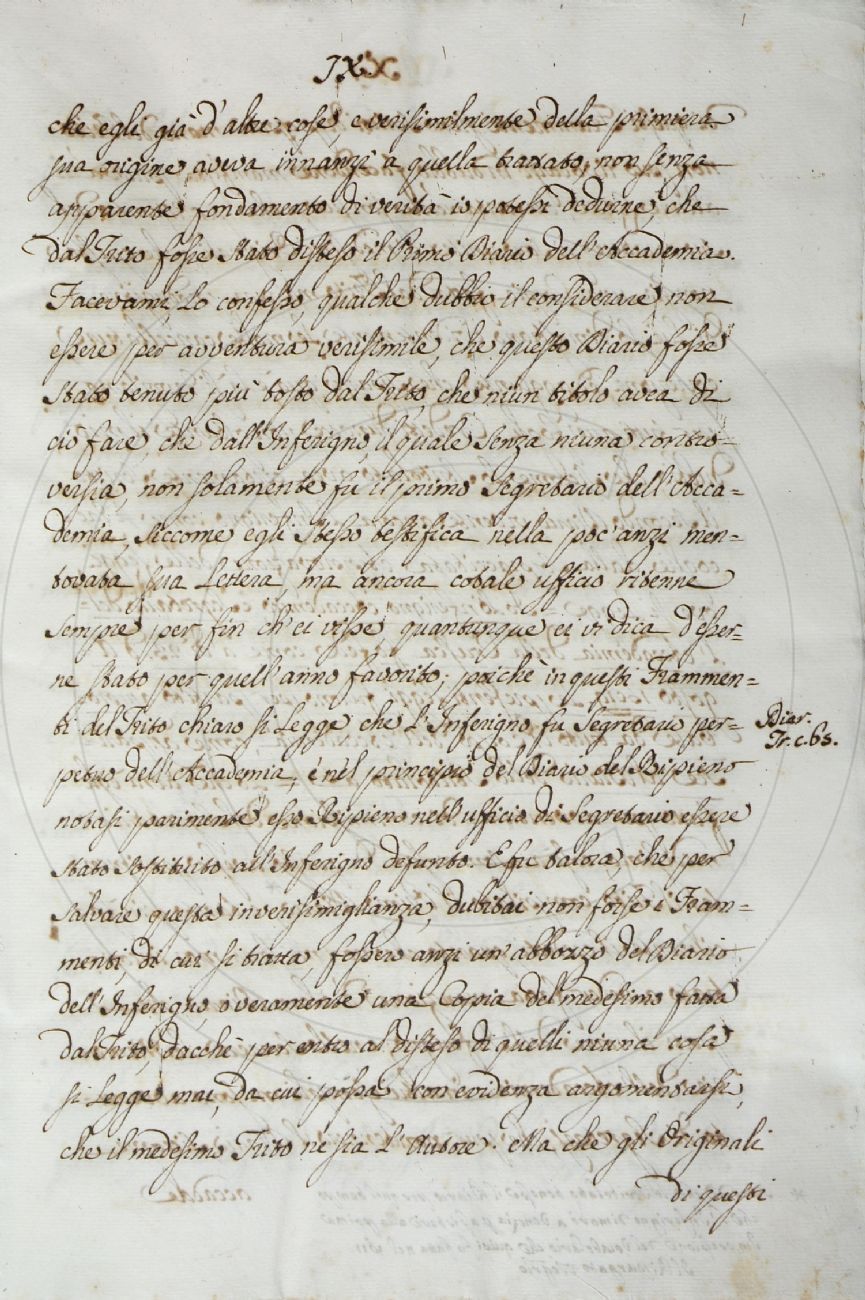 IXX.
che egli già d'altre cose, e verisimilmente della primiera
sua origine aveva innanzi a quella trattato, non senza
apparente fondamento di verità io potessi dedurne, che
dal Trito fosse stato disteso il Primo Diario dell'Accademia.
Facevami, lo confesso, qualche dubbio il considerare non
essere per avventura verisimile, che questo Diario fosse
stato tenuto più tosto dal Trito, che niun titolo avea di
ciò fare, che dall'Inferigno, il quale senza niuna contro-
versia, non solamente fu il primo Segretario dell'Acca=
demia, siccome egli stesso testifica nella poc'anzi men=
tovata sua Lettera, ma ancora cotale ufficio ritenne
sempre per fin ch'ei visse, quantunque ei vi dica d'esser=
ne stato per quell'anno favorito; poichè in questi Frammen=
ti del Trito chiaro si legge, che l'Inferigno fu Segretario per=
petuo dell'Accademia, e nel principio del Diario del Ripieno
notasi parimente esso Ripieno nell'ufficio di Segretario essere
stato sostituito all'Inferigno defunto. E fu talora, che per
salvare questa inverisimiglianza, dubitai non forse i Fram=
menti, di cui si tratta, fossero anzi un'abbozzo del Diario
dell'Inferigno, overamente una Copia del medesimo fatta
dal Trito, dacchè per entro al disteso di quelli niuna cosa
si legge mai, da cui possa con evidenza argomentarsi,
che il medesimo Trito ne sia l'Autore. Ma che gli Originali
di questi
Diar.
Tr. c. 63.